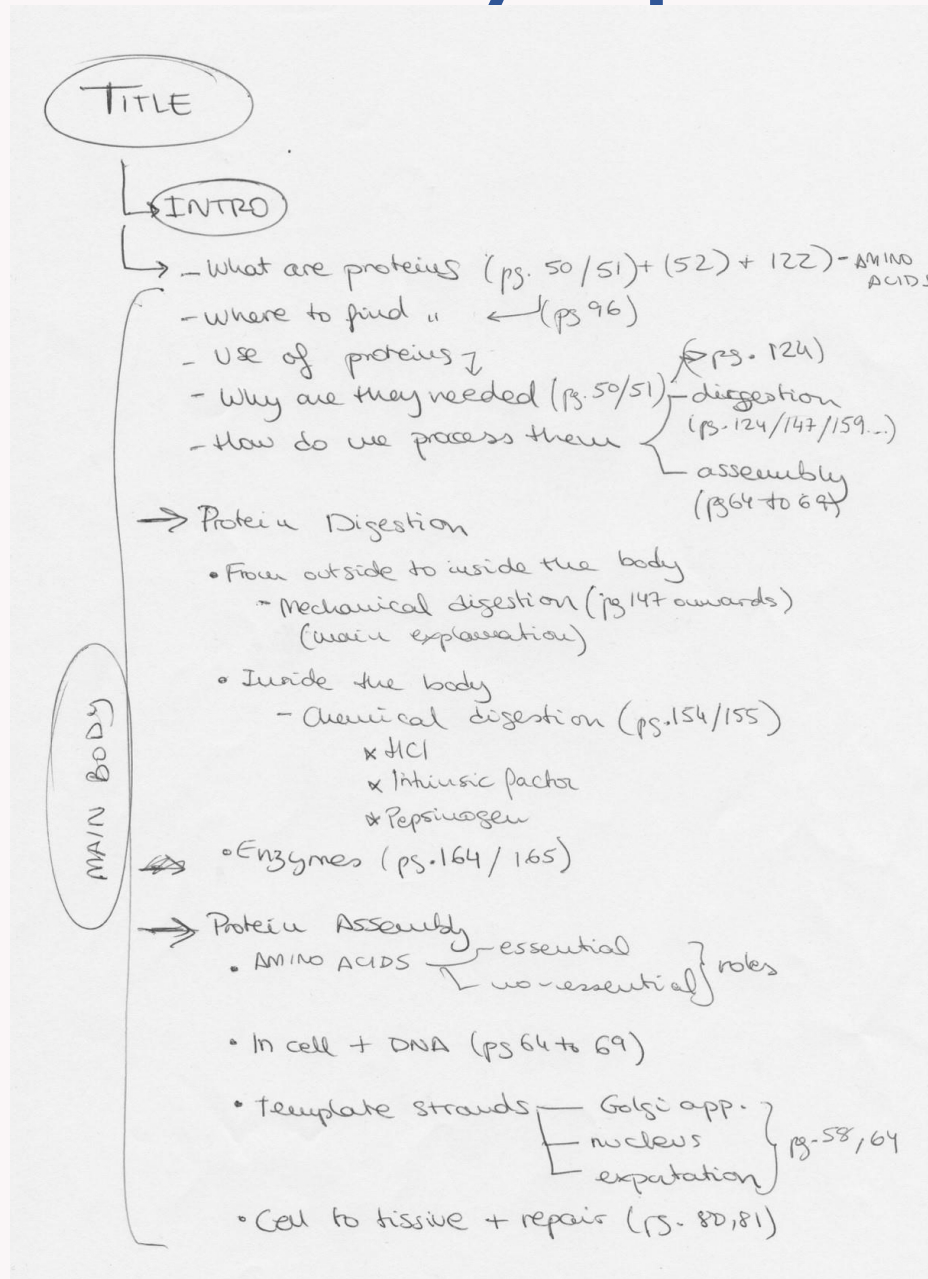 TITLE
INTRO
- What are proteins (pg. 50/51) + (52) + 122) - AMINO ACIDS
- where to find " (pg 96)
- Use of proteins
- Why are they needed (pg. 50/51)
- How do we process them
pg. 124)
- digestion
(pg. 124/147/159...)
- assembly
(pg 64 to 69)
MAIN BODY
→ Protein Digestion
• From outside to inside the body
- Mechanical digestion (pg 147 onwards)
(main explanation)
• Inside the body
- Chemical digestion (pg. 154/155)
* HCl
* Intrinsic factor
* Pepsinogen
• Enzymes (pg. 164/165)
→ Protein Assembly
• AMINO ACIDS - essential
no-essential } roles
• In cell + DNA (pg 64 to 69)
• template strands - Golgi app.
- nucleus
- expotation } pg. 58, 64
• Cell to tissive + repair (pg. 80, 81)